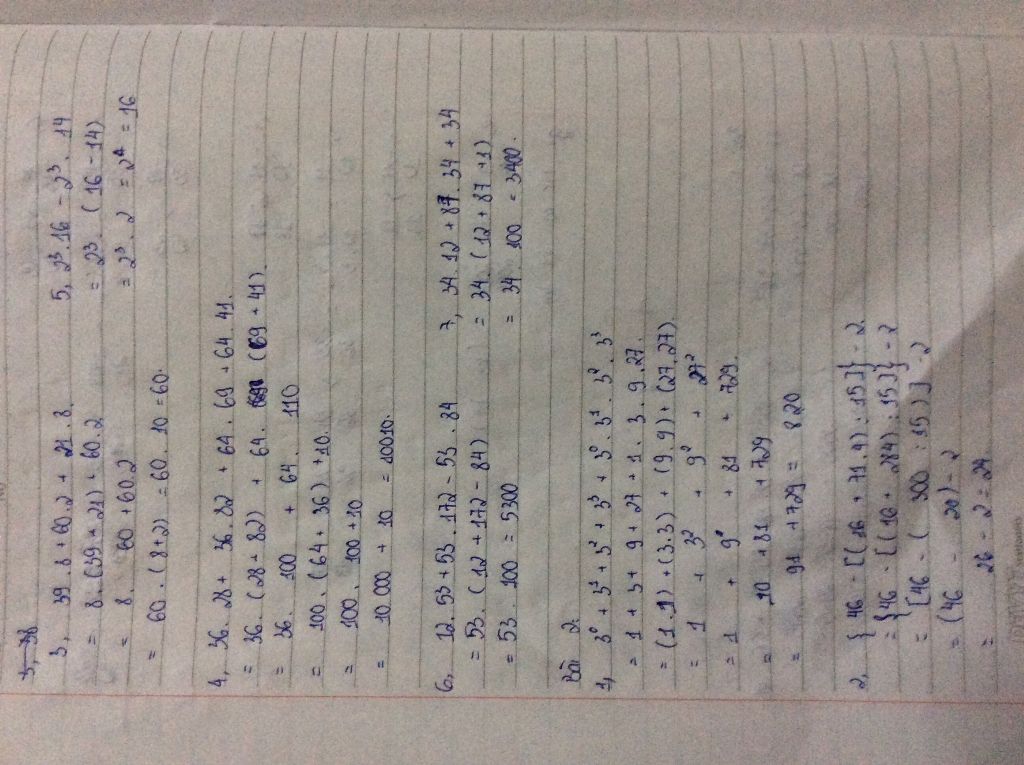 3, 39.8 + 60.2 + 21.8.
= 8.(39 + 21) + 60.2
= 8. 60 + 60.2
= 60.(8+2) = 60.10 = 60.
5, 2³.16 - 2³.14
= 2³.(16 - 14)
= 2³.2 = 2⁴ = 16
4, 36.28 + 36.82 + 64.69 + 64.41.
= 36.(28 + 82) + 64.(69 + 41)
= 36. 100 + 64. 110
= 100.(64 + 36) + 10.
= 100.100 + 10
= 10.000 + 10 = 10010.
6, 12.53 + 53.172 - 53.84
= 53.(12 + 172 - 84)
= 53.100 = 5300
7, 34.12 + 87.34 + 34
= 34.(12 + 87 + 1)
= 34.100 = 3400.
Bài 2.
1, 3⁰ + 3¹ + 3² + 3³ + 3⁰.3¹.3².3³
= 1 + 3 + 9 + 27 + 1.3.9.27.
= (1.1) + (3.3) + (9.9) + (27.27).
= 1 + 3² + 9² + 27²
= 1 + 9 + 81 + 729.
= 10 + 81 + 729
= 91 + 729 = 820
2, {46 - [(16 + 71.4) : 15]} - 2.
= {46 - [(16 + 284) : 15]} - 2
= [46 - (300 : 15)] - 2
= (46 - 20) - 2
= 26 - 2 = 24